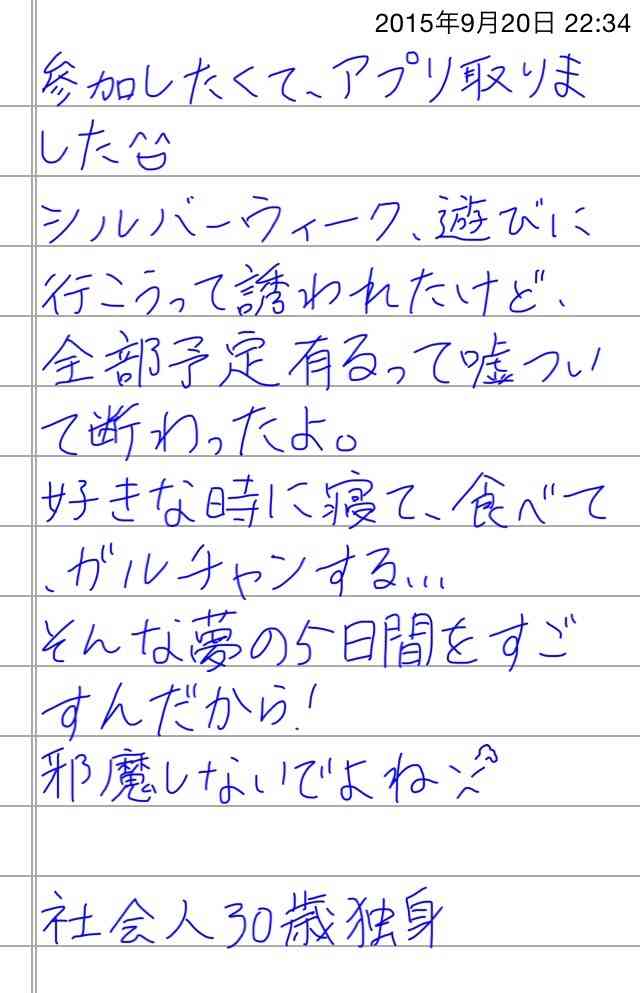 2015年9月20日 22:34
参加したくて、アプリ取りま
した^^
シルバーウィーク、遊びに
行こうって誘われたけど、
全部予定有るって嘘つい
て断わったよ。
好きな時に寝て、食べて
、ガルチャンする...
そんな夢の5日間をすご
すんだから!
邪魔しないでよね
社会人30歳独身